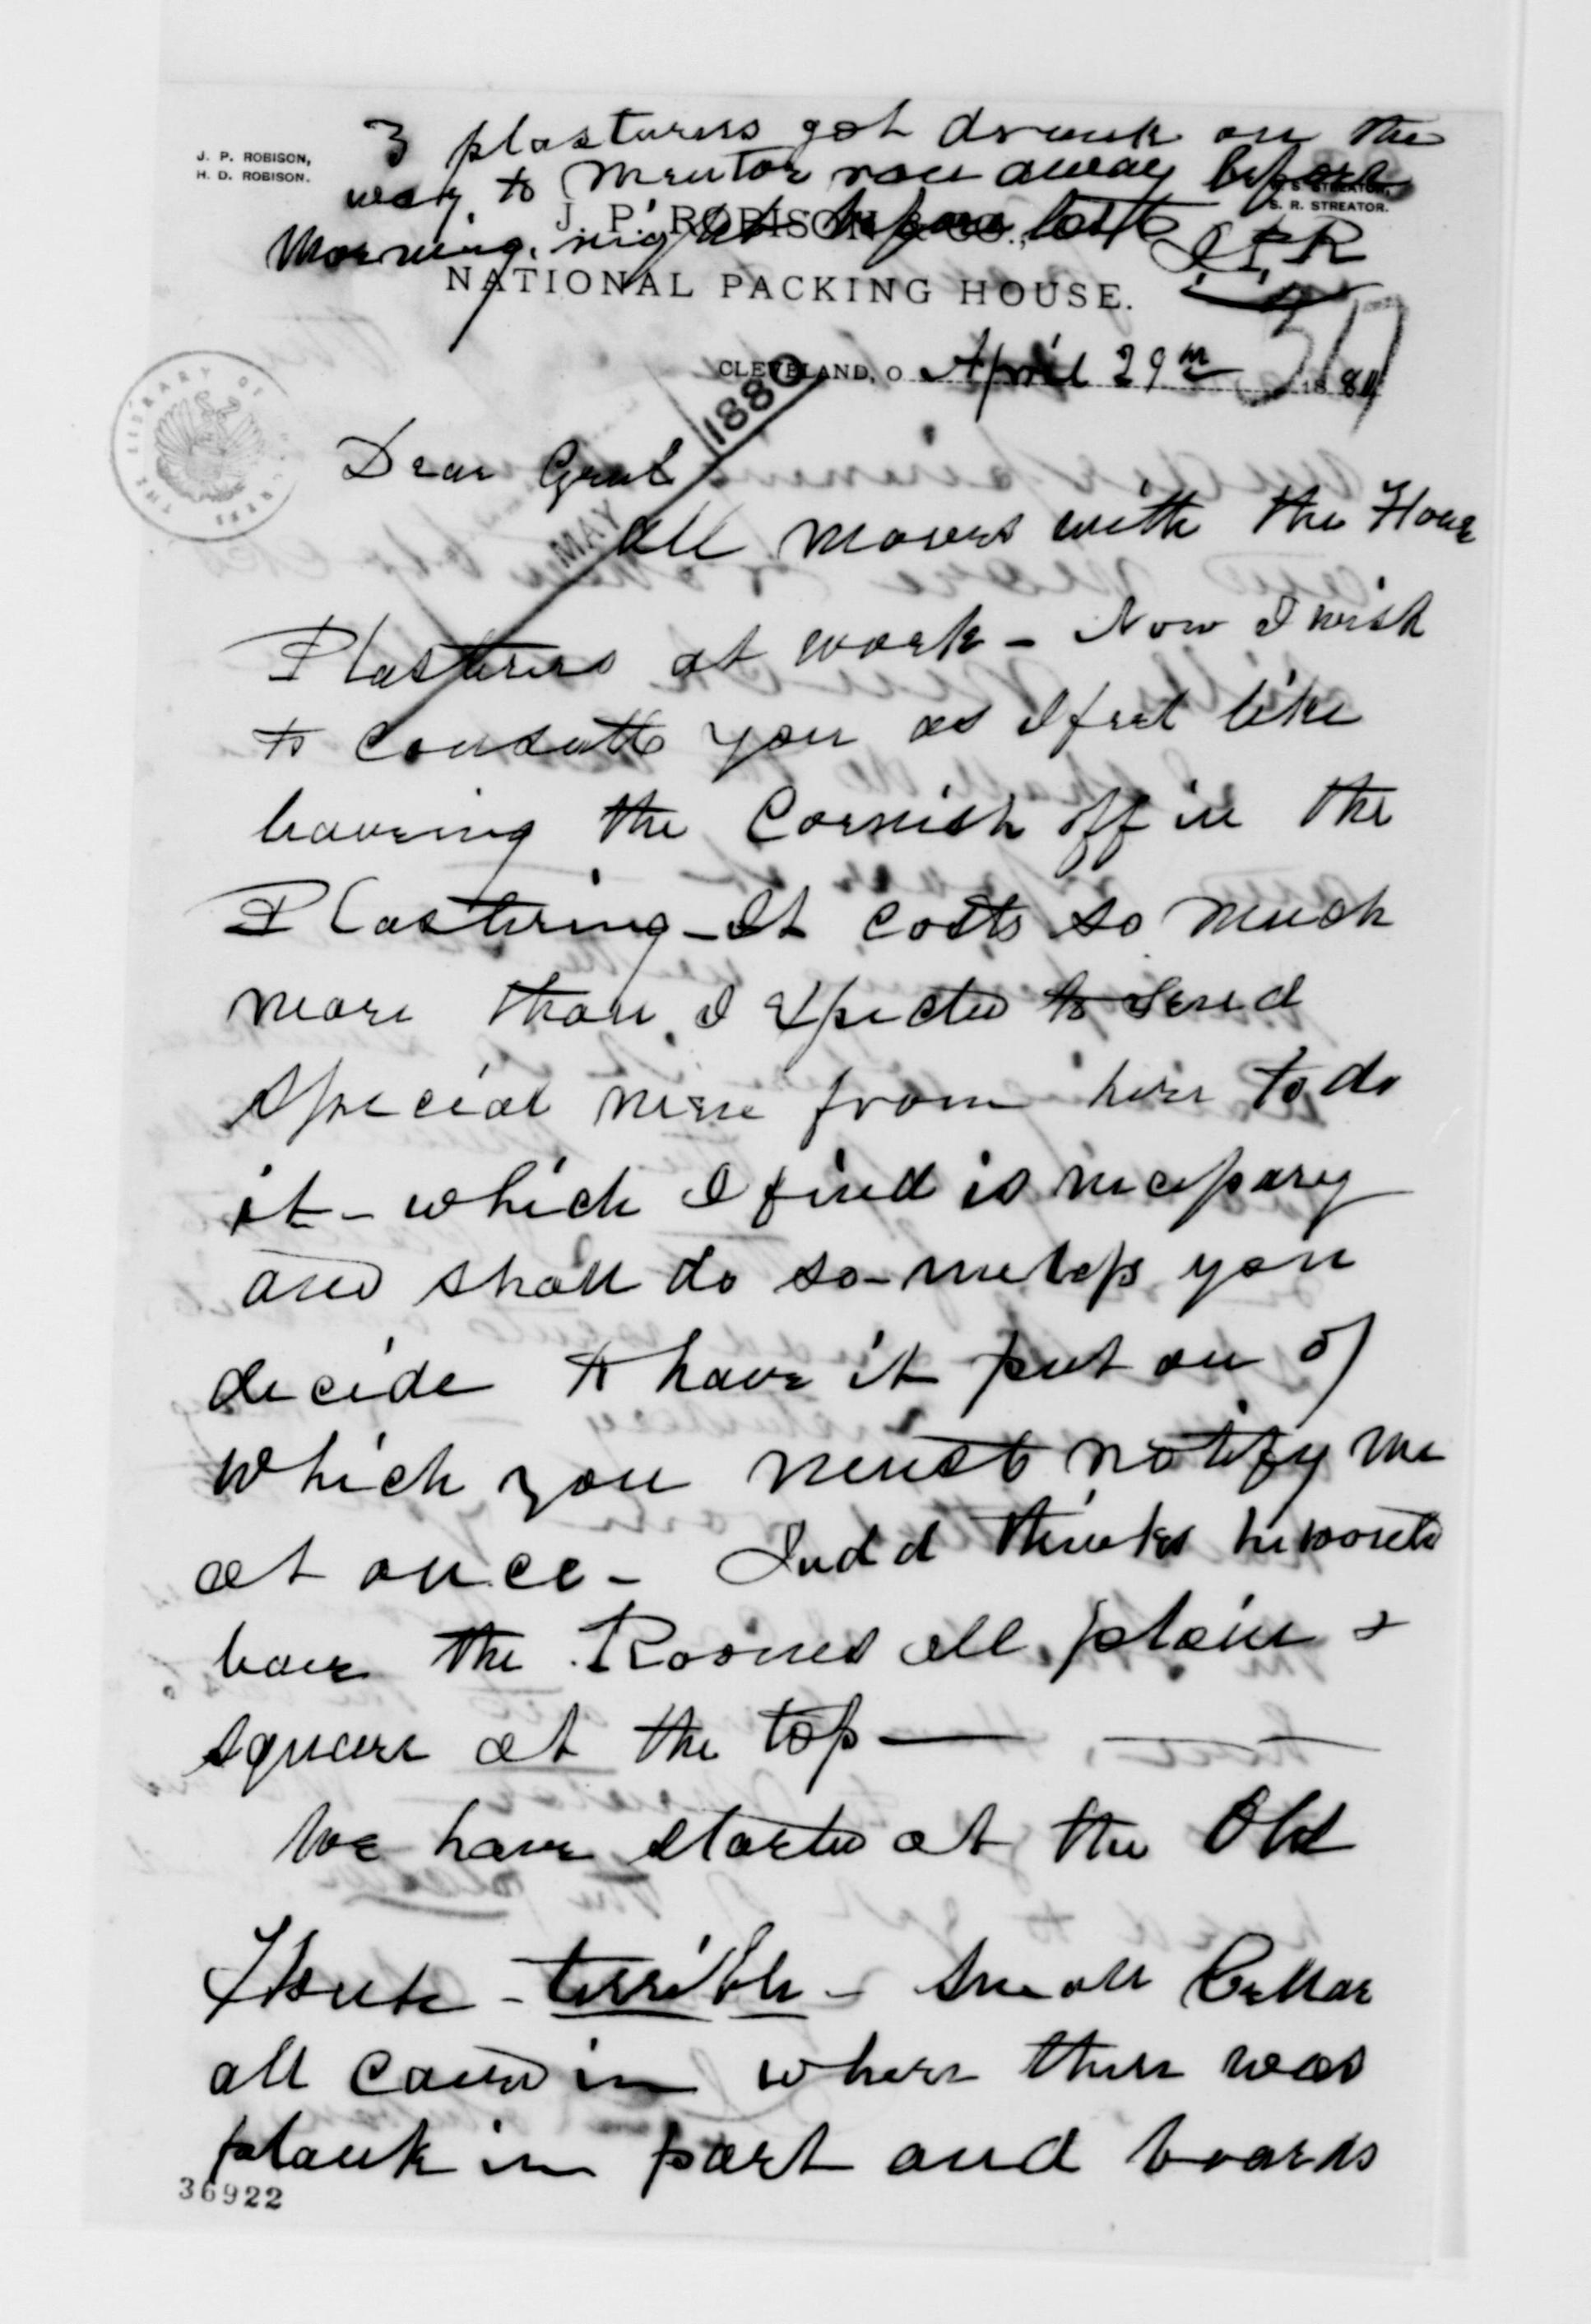 J. P. ROBISON,
H. D. ROBISON.
S. R. STREATOR.
3 plasturers got drunk on the
way to Mentor run away before
Morning, night before last J.P.R
J. P. ROBISON & CO.,
NATIONAL PACKING HOUSE.
CLEVELAND, O April 29th 1880
MAY 1880
THE LIBRARY OF CONGRESS
Dear Genl
all moves with the House
Plasterers at work - Now I wish
to consult you as I feel like
leaving the Cornish off in the
Plastering - It costs so much
more than I Expected to send
special men from here to do
it - which I find is necessary
and shall do so - unless you
decide to have it put on of
which you must notify me
at once - Judd thinks he would
have the Rooms all plain &
square at the top —
We have started at the Old
House - terrible - small Cellar
all caved in where there was
plank in part and boards
36922